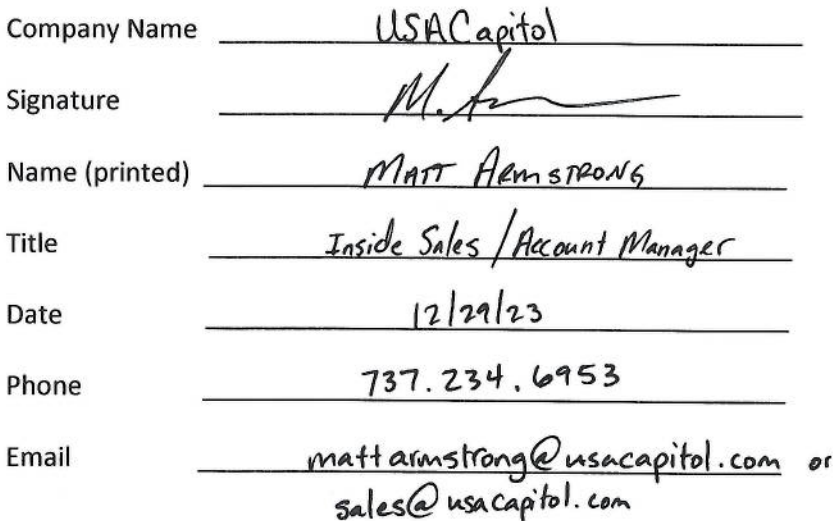 Company Name USACapitol
Signature M. A
Name (printed) MATT ARMSTRONG
Title Inside Sales / Account Manager
Date 12/29/23
Phone 737.234.6953
Email mattarmstrong@usacapitol.com or
sales@usacapitol.com